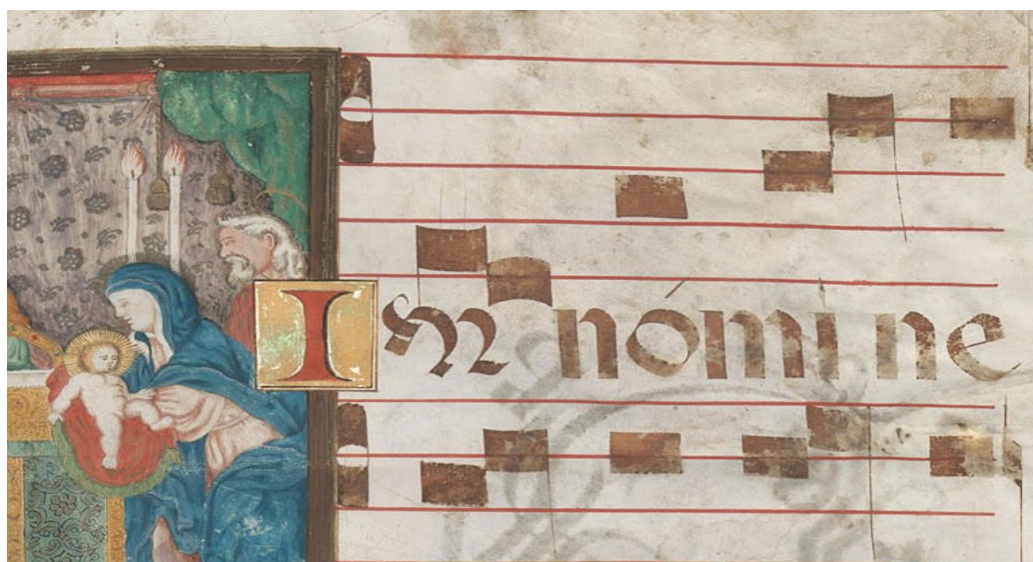 In nómine